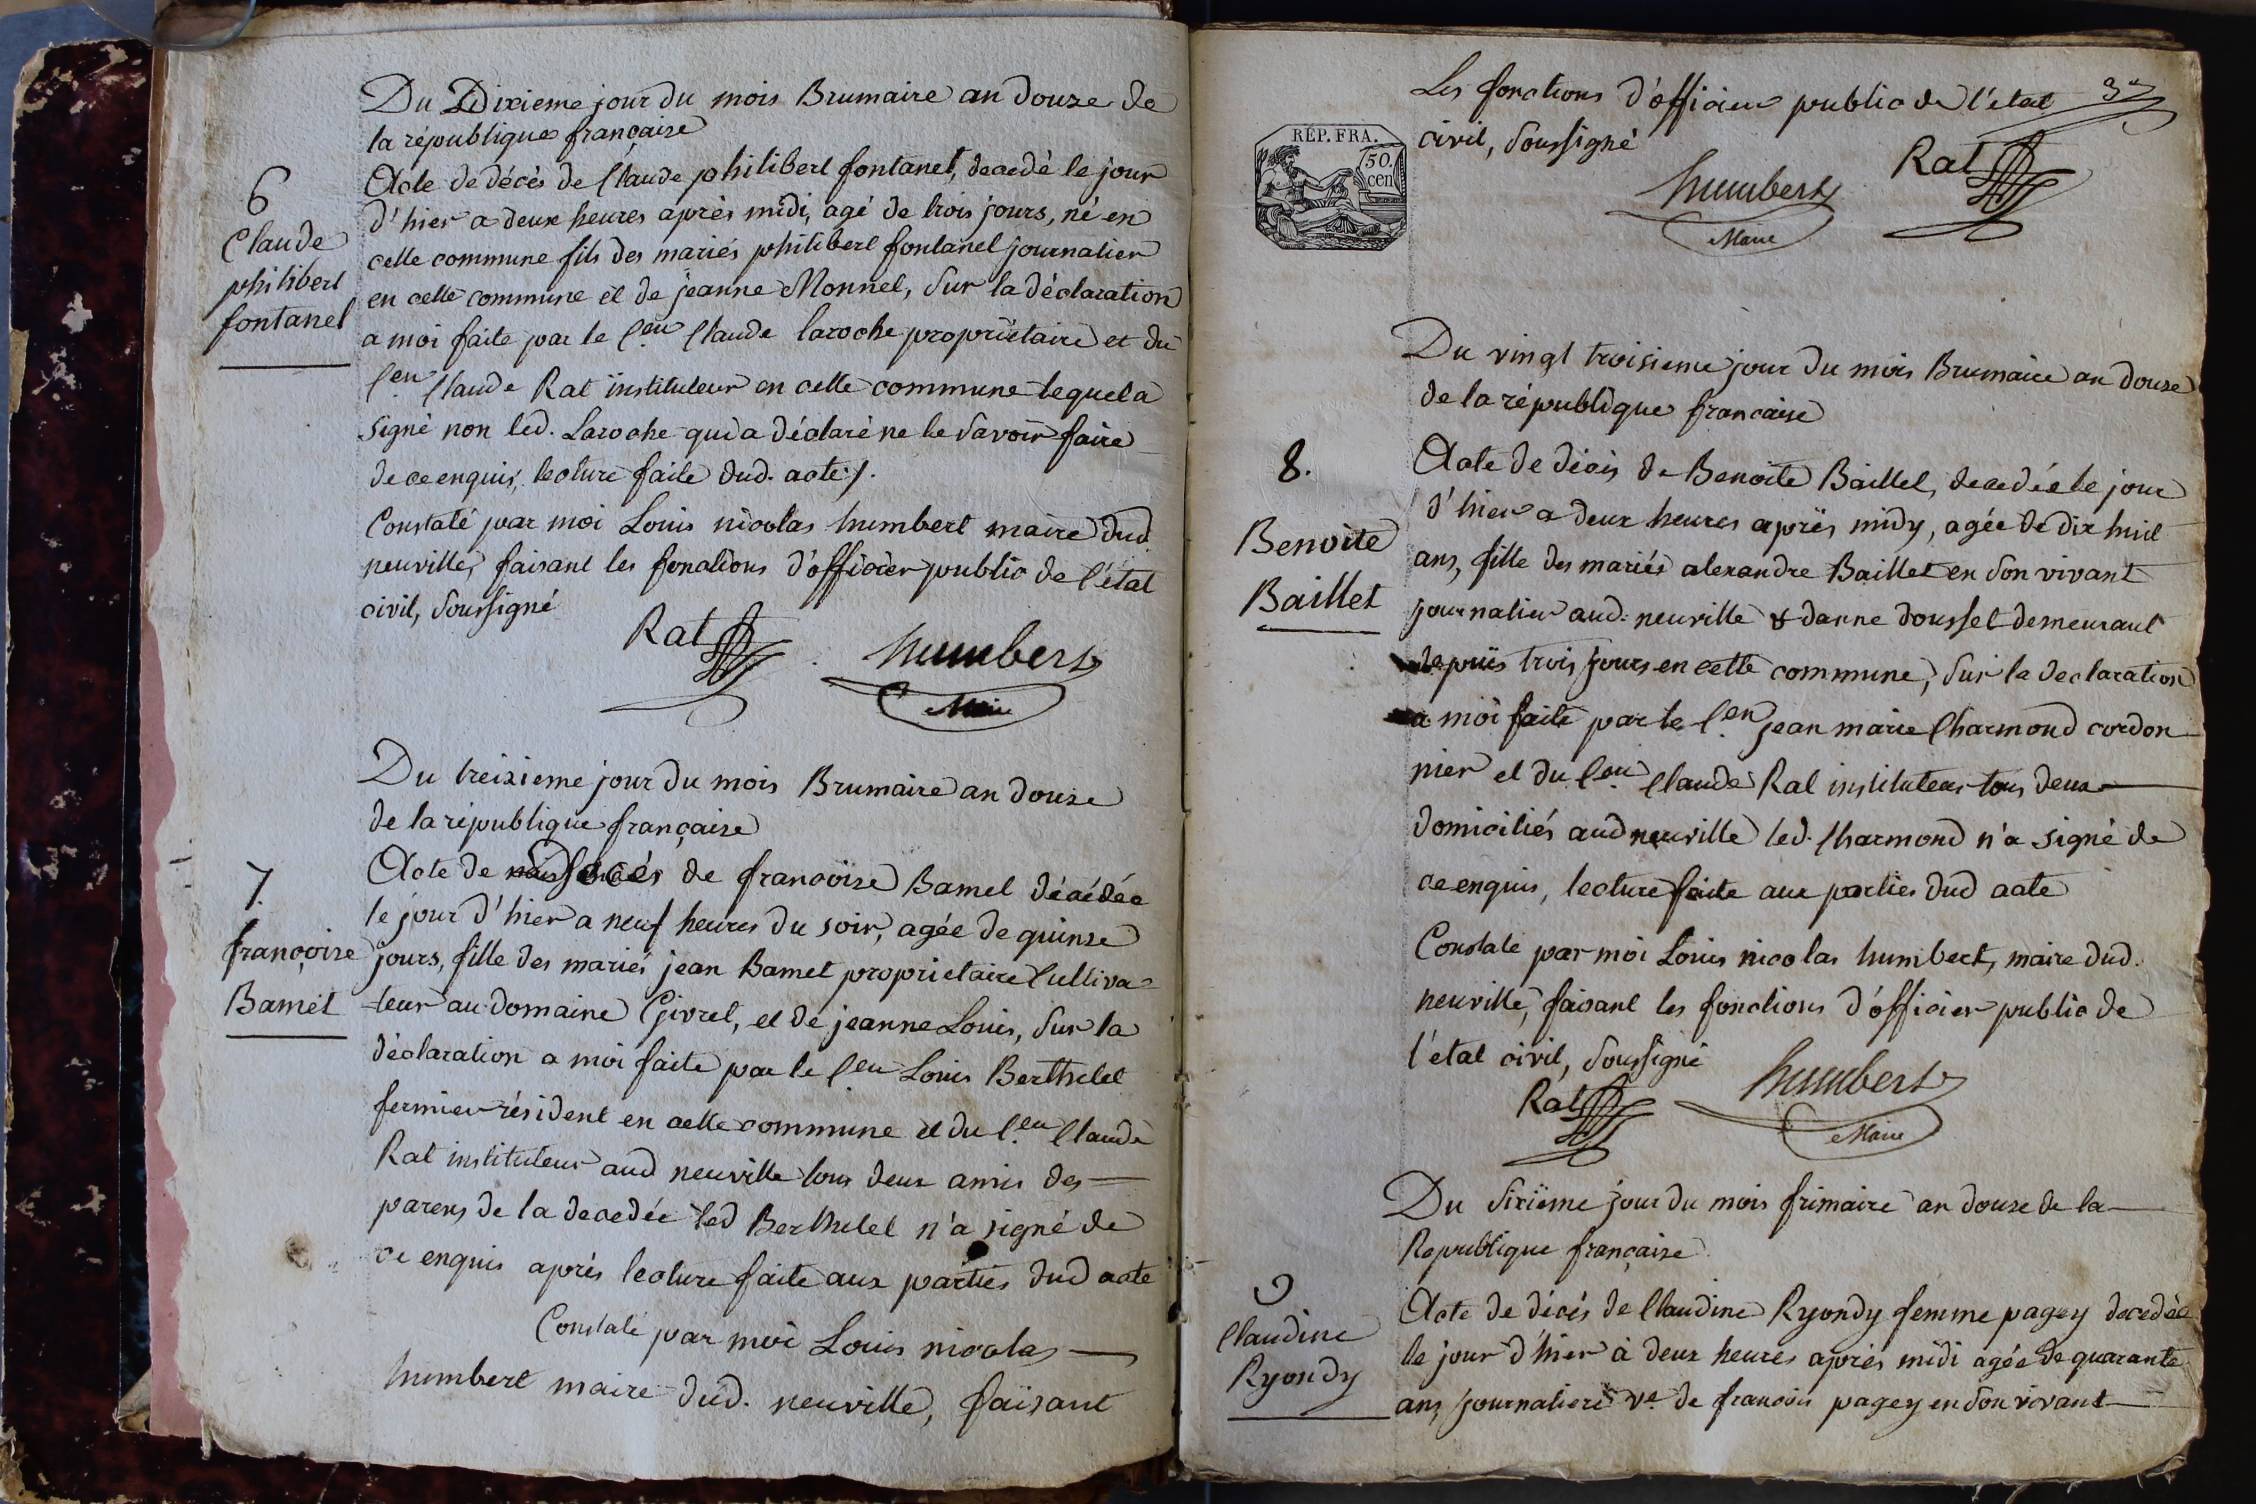 Du Dixieme jour du mois Brumaire an douze de
la république française
6
Claude
philibert
fontanel
Acte de décès de Claude philibert fontanel, decedé le jour
d'hier a deux heures après midi, agé de trois jours, né en
cette commune fils des mariés philibert fontanel journalier
en cette commune et de jeanne Monnel, sur la déclaration
a moi faite par le C.en Claude laroche propriétaire et du
C.en Claude Rat instituteur en cette commune lequel a
signé non led. Laroche qui a déclaré ne le savoir faire
de ce enquis, lecture faite dud. acte ./.
Constaté par moi Louis nicolas humbert maire dud.
neuville, faisant les fonctions d'officier public de l'état
civil, soussigné
Rat humbert
Maire
Du treizieme jour du mois Brumaire an douze
de la république française
7.
françoise
Bamet
Acte de décés de francoise Bamel décédée
le jour d'hier a neuf heures du soir, agée de quinze
jours, fille des mariés jean Bamet proprietaire Cultiva=
teur au domaine Givrel, et de jeanne Louis, sur la
déclaration a moi faite par le C.en Louis Berthelet
fermier résident en cette commune et du C.en Claude
Rat instituteur aud neuville tous deux amis des
parens de la decedée led Berthelet n'a signé de
ce enquis après lecture faite aux parties dud acte
Constaté par moi Louis nicolas
humbert maire dud. neuville, faisant
3
Les fonctions d'officier public de l'état
civil, soussigné
RÉP. FRA.
50.
cen
humbert Rat
Maire
Du vingt troisieme jour du mois Brumaire an douze
de la république francaise
8.
Benoite
Baillet
Acte de décis de Benoite Baillet, decedée le jour
d'hier a deux heures après midy, agée de dix huit
ans, fille des mariés alexandre Baillet en son vivant
journalier aud. neuville & danne dousset demeurant
depuis trois jours en cette commune, sur la declaration
a moi faite par le C.en jean marie Charmond cordon
nier et du C.en Claude Rat instituteur tous deux
domiciliés aud neuville led. Charmond n'a signé de
ce enquis, lecture faite aux parties dud acte
Constaté par moi Louis nicolas humbert, maire dud.
neuville, faisant les fonctions d'officier public de
l'état civil, soussigné
Rat humbert
Maire
Du sixième jour du mois frimaire an douze de la
Republique française
9
Claudine
Ryondy
Acte de décés de Claudine Ryondy femme pagey decedée
le jour d'hier à deux heures après midi agée de quarante
ans, journaliere v.e de francois pagey en son vivant